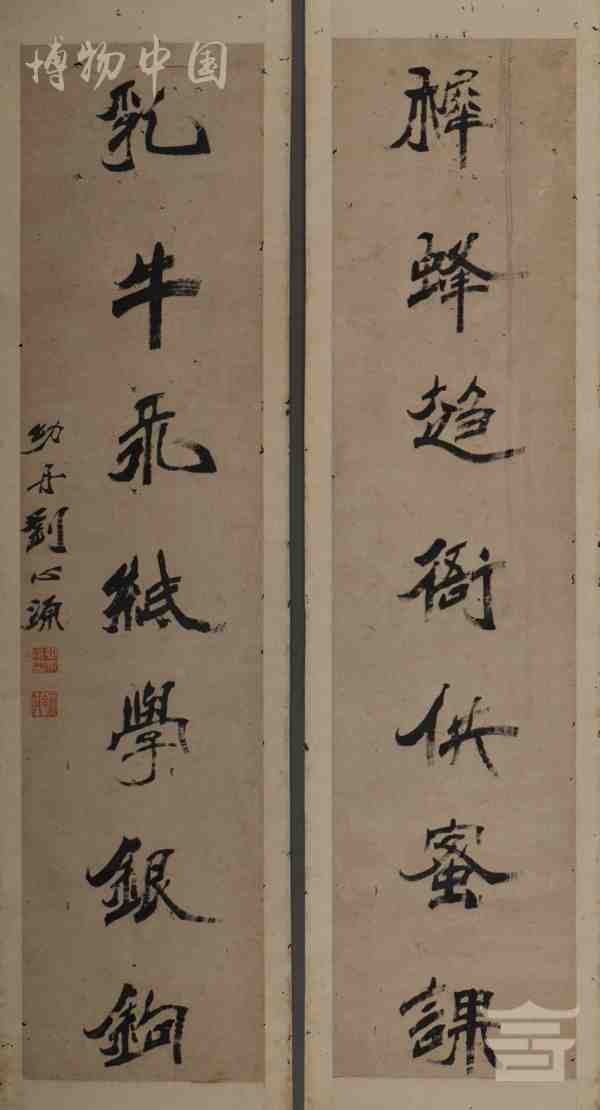 穉蜂趍衙供蜜課
乳牛紙學銀鉤
幼丹劉心源
博物中国